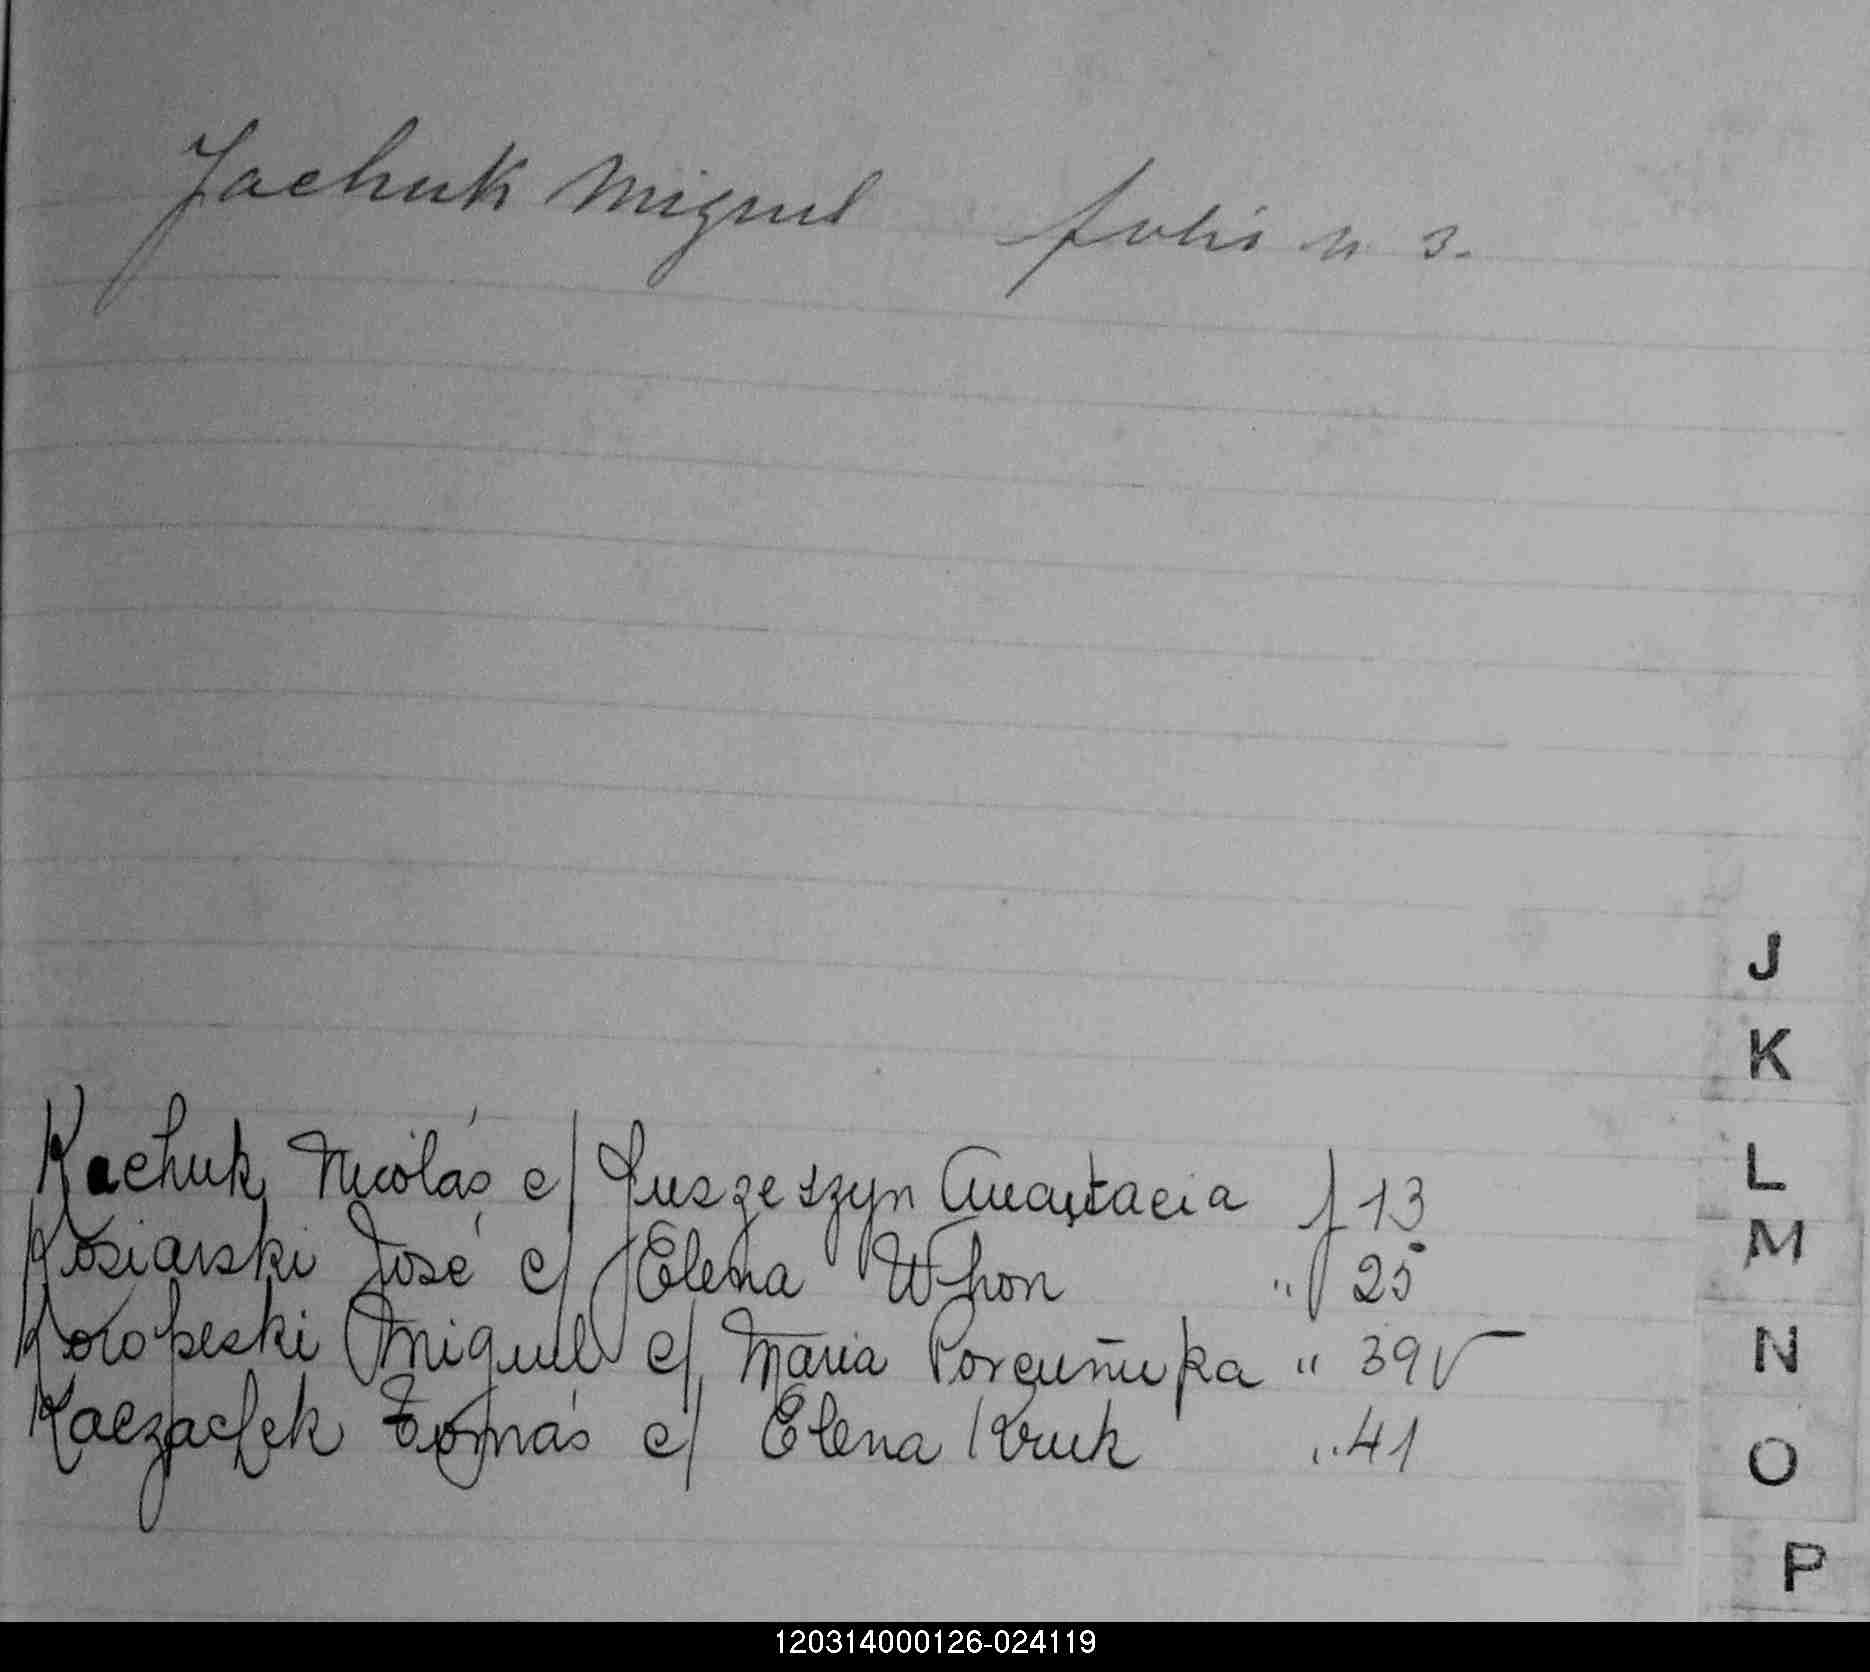 Jachuk Miguel folio n 3.
J
K
Kachuk Nicolás c/ Juszeszyn Anastacia f 13
L
Kosiarski José c/ Elena Whon " 25
M
Koropeski Miguel c/ Maria Porcuñuka " 39v
N
Kaczachek Tomás c/ Elena Kruk " 41
O
P
120314000126-024119